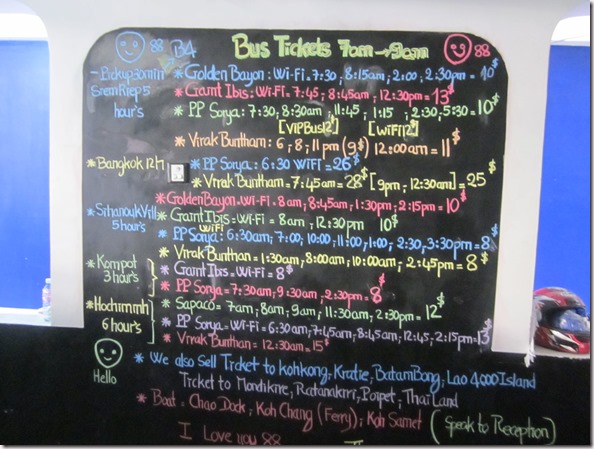 88 B4 Bus Tickets 7am → 9am 88
- Pickup 30min
Siem Riep 5
hour's
* Golden Bayon: Wi-Fi = 7:30, 8:15am, 2:00, 2:30pm = 10$
* Giant Ibis: Wi-Fi = 7:45, 8:45am, 12:30pm = 13$
* PP Sorya: 7:30, 8:30am, 11:45, 1:15, 2:30, 5:30 = 10$
[VIP Bus 12$] [WiFi 12$]
* Virak Buntham: 6, 8, 11pm (9$) 12:00am = 11$
* Bangkok 12h
* PP Sorya: 6:30 WiFi = 26$
* Virak Buntham = 7:45am = 28$ [9pm, 12:30am] = 25$
* Sihanouk Vill
5 hours
* Golden Bayon = Wi-Fi = 8am, 8:45am, 1:30pm, 2:15pm = 10$
* Giant Ibis = Wi-Fi = 8am, 12:30pm 10$
WiFi
* PP Sorya: 6:30am, 7:00, 10:00, 11:00, 1:00, 2:30, 3:30pm = 8$
* Virak Bunthan = 1:30am, 8:00am, 10:00am, 2:45pm = 8$
* Kompot
3 hair's
* Giant Ibis = Wi-Fi = 8$
* PP Sorya = 7:30am, 9:30am, 2:30pm = 8$
* Hochiminh
6 hour's
* Sapaco = 7am, 8am, 9am, 11:30am, 2:30pm = 12$
* PP Sorya = Wi-Fi = 6:30am, 7:45am, 8:45am, 12:45, 2:15pm = 13$
* Virak Buntham: 12:30am = 15$
Hello
* We also Sell Ticket to kohkong, Kratie, BatamBong, Lao 4000 Island
Ticket to Mondikire, Ratanakiri, Poipet, Thai Land
* Boat: Chao Dock, Koh Chang (Ferry), Koh Samet (Speak to Reception)
I Love you 88